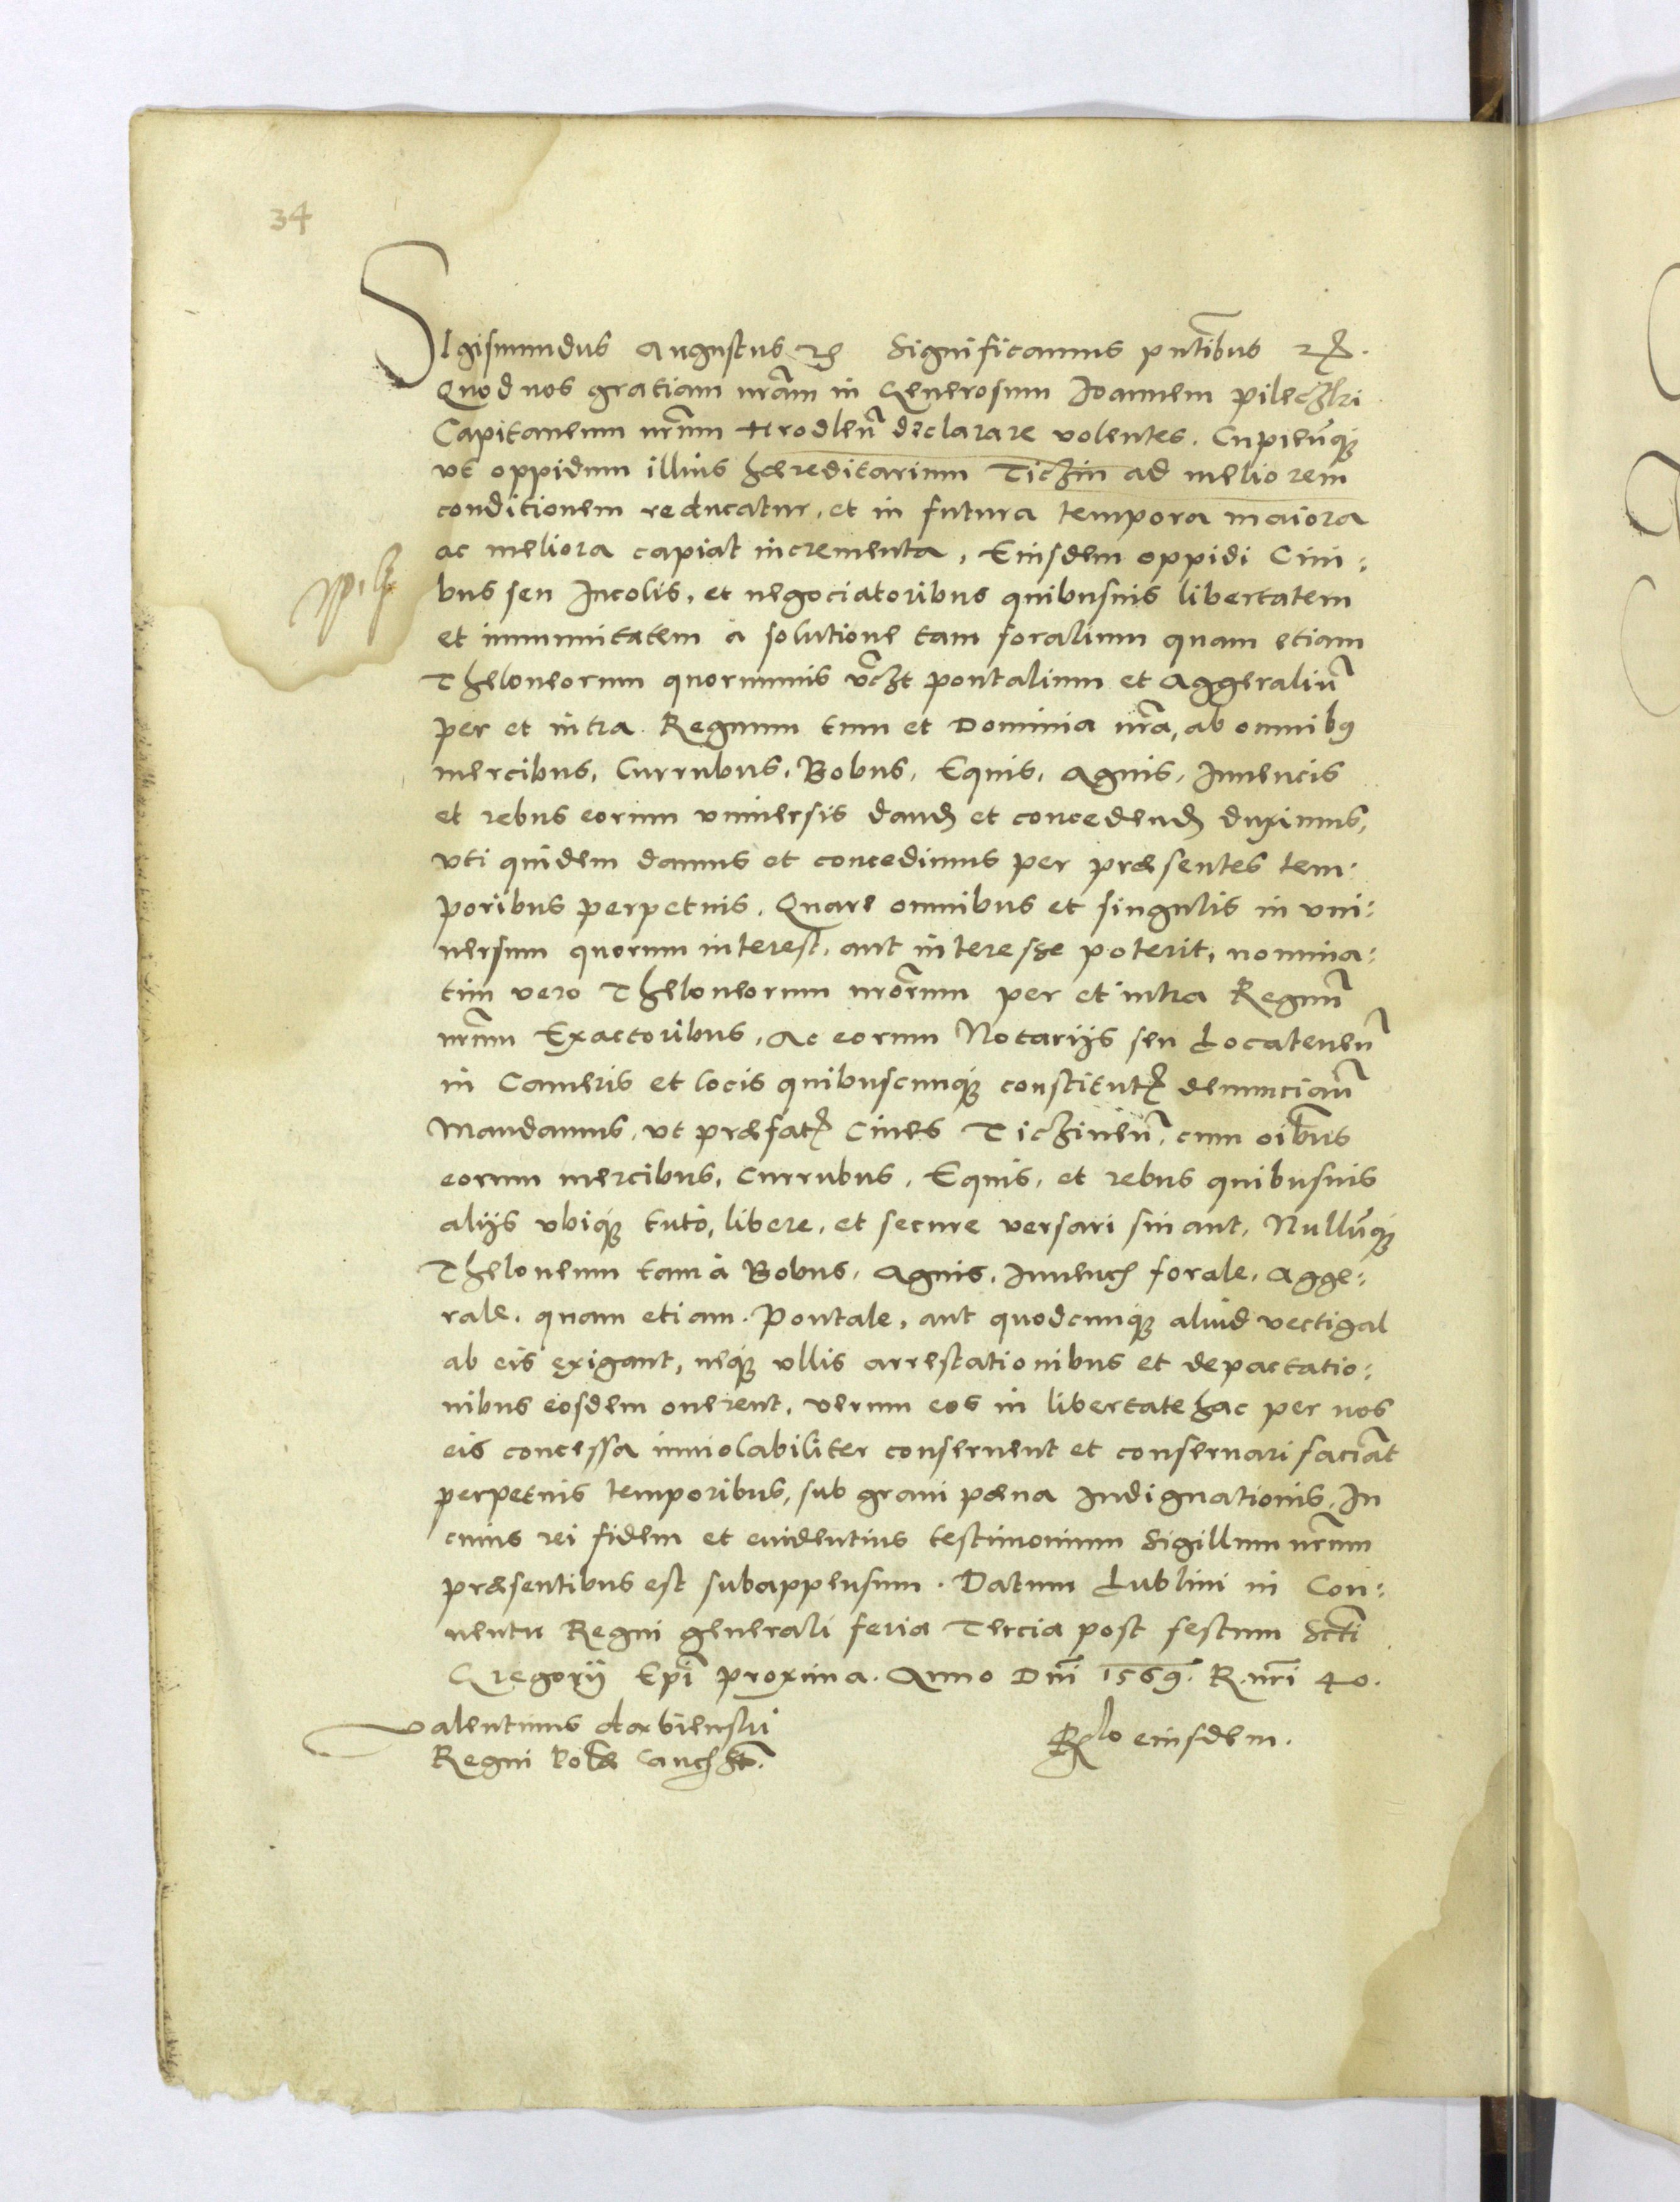 34
Sigismundus Augustus etc Significamus pñtibus etc.
Quod nos gratiam nr̃am in Generosum Ioannem Pileczki
Capitaneum nr̃um Hrodleñ declarare volentes. Cupieñq̃
vt oppidum illius hæreditarium Ticzin ad meliorem
conditionem reducatur, et in futura tempora maiora
ac meliora capiat incrementa, Eiusdem oppidi Ciui:
bus seu Incolis, et negociatoribus quibusuis libertatem
et immunitatem à solutione tam foralium quam etiam
Theloneorum quorumuis vc̃zt pontalium et Aggeraliũ
per et intra Regnum tum et Dominia nr̃a, ab omnib9
mercibus, Curribus, Bobus, Equis, Agnis, Iuuencis
et rebus eorum vniuersis dand et concedend duximus,
vti quidem damus et concedimus per præsentes tem:
poribus perpetuis. Quare omnibus et singulis in vni:
uersum quorum interest, aut interesse poterit, nomina:
tim vero Theloneorum nr̃orum per et intra Regnũ
nr̃um Exactoribus, Ac eorum Notarijs seu Locateneñ
in Cameris et locis quibuscunq̃ constitut denunciañ
Mandamus, vt præfat Ciues Ticzineñ, cum oĩbus
eorum mercibus, Curribus, Equis, et rebus quibusuis
alijs vbiq̃ tutò, libere, et secure versari sinant, Nullũq̃
Theloneum tam à Bobus, Agnis, Iuuenc forale, Agge:
rale, quam etiam Pontale, aut quodcunq̃ aliud vectigal
ab eis exigant, neq̃ vllis arrestationibus et depactatio:
nibus eosdem onerent, verum eos in libertate hac per nos
eis concessa inuiolabiliter conseruent et conseruari faciãt
perpetuis temporibus, sub graui pœna Indignationis, In
cuius rei fidem et euidentius testimonium Sigillum nr̃um
præsentibus est subappensum. Datum Lublini in Con:
uentu Regni generali feria Tercia post festum Sc̃ti
Gregorij Epĩ proxima. Anno Dñi 1569. R. nr̃i 40.
Valentinus Dembienski
Regni Pol Canc
Rlo eiusdem.